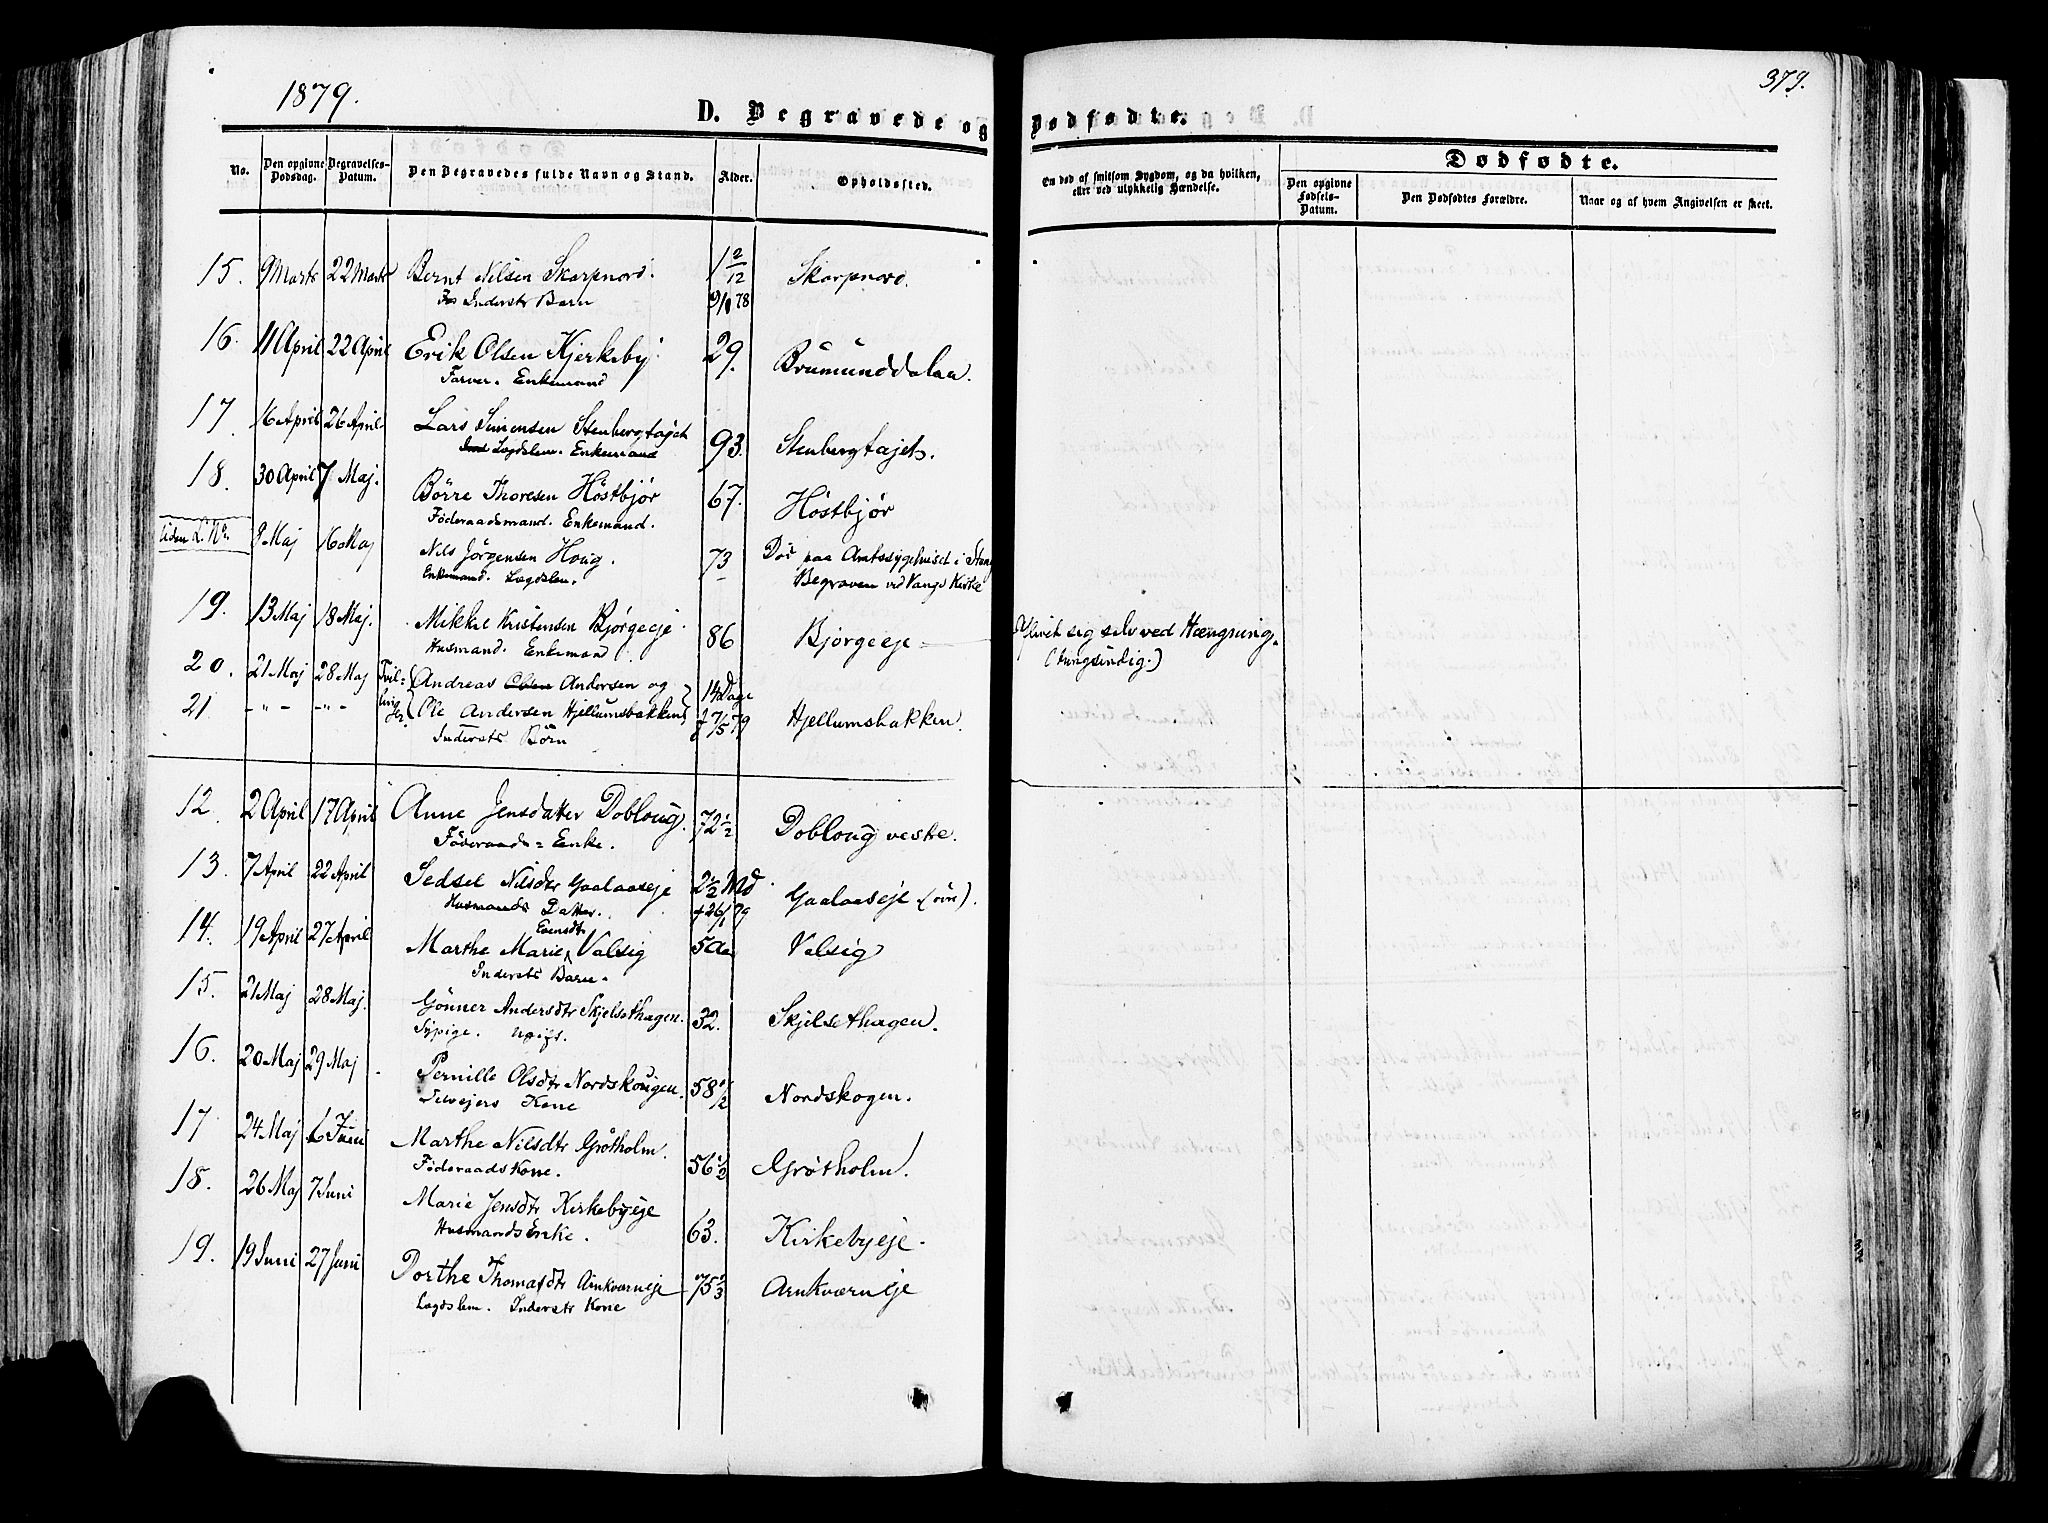 1879.
379.
D. Begravede og Dødfødte.
No.
Den opgivne Dødsdag.
Begravelses-Datum.
Den Begravedes fulde Navn og Stand.
Alder.
Opholdssted.
En død af smitsom Sygdom, og da hvilken, eller ved ulykkelig Hændelse.
Dødfødte.
Den opgivne Fødsels-Datum.
Den Dødfødtes Forældre.
Naar og af hvem Angivelsen er skeet.
15. 9 Marts 22 Marts Bernt Nilsen Skarpnord. 1 2/12 Skarpnord.
Inderstr Barn 78
16. 11 April 22 April Erik Olsen Kjerkeby. 29. Brumunddalen.
Farver. Enkemand
17. 16 April 26 April Lars Simensen Stenbergtajet 93. Stenbergtajet.
Lægdslem. Enkemand
18. 30 April 7 Maj. Börre Thoresen Höstbjör 67. Höstbjør
Föderaadsmand. Enkemand.
Uden L. Nr. 9 Maj 16 Maj Nils Jörgensen Houg. 73 Död paa Amtssygehuset i Stang
Enkemand. Lægdslem. Begraven ved Vangs Kirke
19. 13 Maj 18 Maj. Mikkel Kristensen Bjørgeeje 86 Bjørgeeje
Husmand. Enkemand
hængte sig selv ved Hængning.
(tungsindig.)
20. 21 Maj 28 Maj Tvillinger Andreas Olsen Andersen og 14 Dage
21 -"- -"- Ole Andersen Hjellumsbakken f 7/5 79 Hjellumsbakken.
Indersts Börn
12. 2 April 17 April Anne Jensdatter Dobloug. 72 1/2 Doblougvestre.
Föderaads=Enke.
13. 7 April 22 April Sedsel Nilsdtr Gaalaaseje 2 1/2 Md. Gaalaaseje (övre).
Husmands Datter. f 26/1 79
14. 19 April 27 April Marthe Marie Evensdtr Valsig 5 Aar Valsig
Indersts Barn.
15. 21 Maj 28 Maj. Gönner Andersdtr Skjelsethagen. 32. Skjelsethagen.
Sypige. Ugift.
16. 20 Maj 29 Maj Pernille Olsdtr Nordskougen. 58 1/2 Nordskogen.
Selvejers Kone
17. 24 Maj 6 Juni Marthe Nilsdtr Grötholm. 56 1/2 Grötholm.
Föderaads Kone.
18. 26 Maj 7 Juni Marie Jensdtr Kirkebyeje 63. Kirkebyeje.
Husmands Enke.
19. 19 Juni 27 Juni Dorthe Thomasdtr Arnkværneje 75 2/3 Arnkværneje
Lægdslem. Inderstr Kone